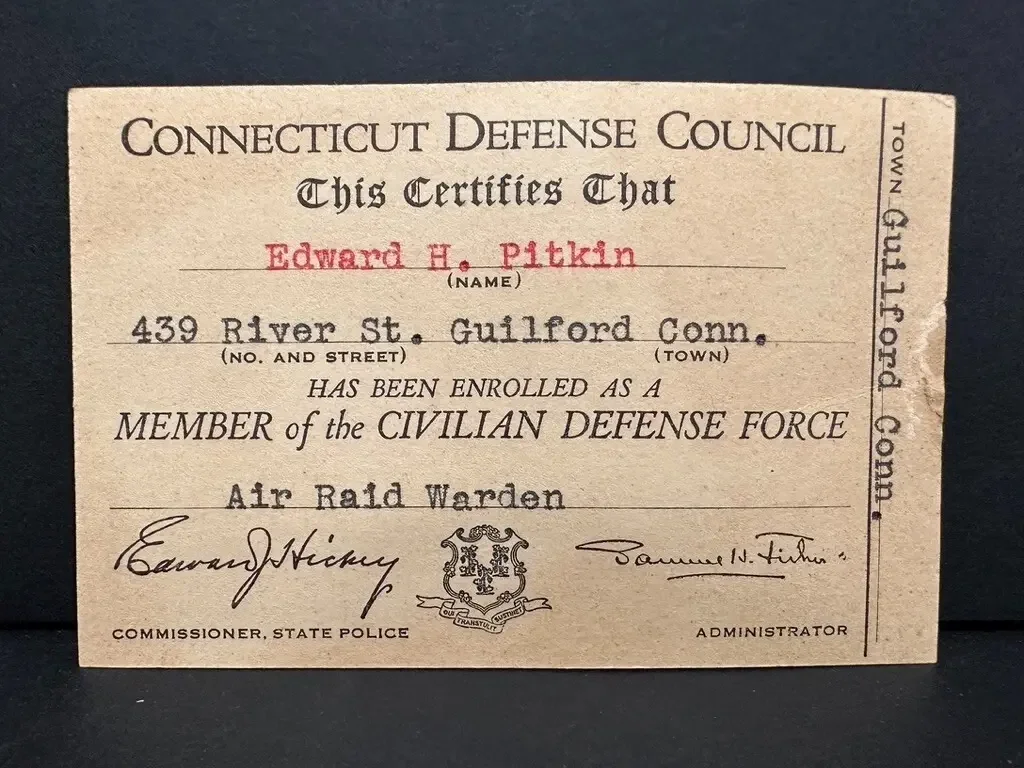 CONNECTICUT DEFENSE COUNCIL
This Certifies That
Edward H. Pitkin
(NAME)
439 River St. Guilford Conn.
(NO. AND STREET) (TOWN)
HAS BEEN ENROLLED AS A
MEMBER of the CIVILIAN DEFENSE FORCE
Air Raid Warden
Edward J. Hickey
Samuel H. Fisher
QUI TRANSTULIT SUSTINET
COMMISSIONER, STATE POLICE
ADMINISTRATOR
TOWN Guilford Conn.